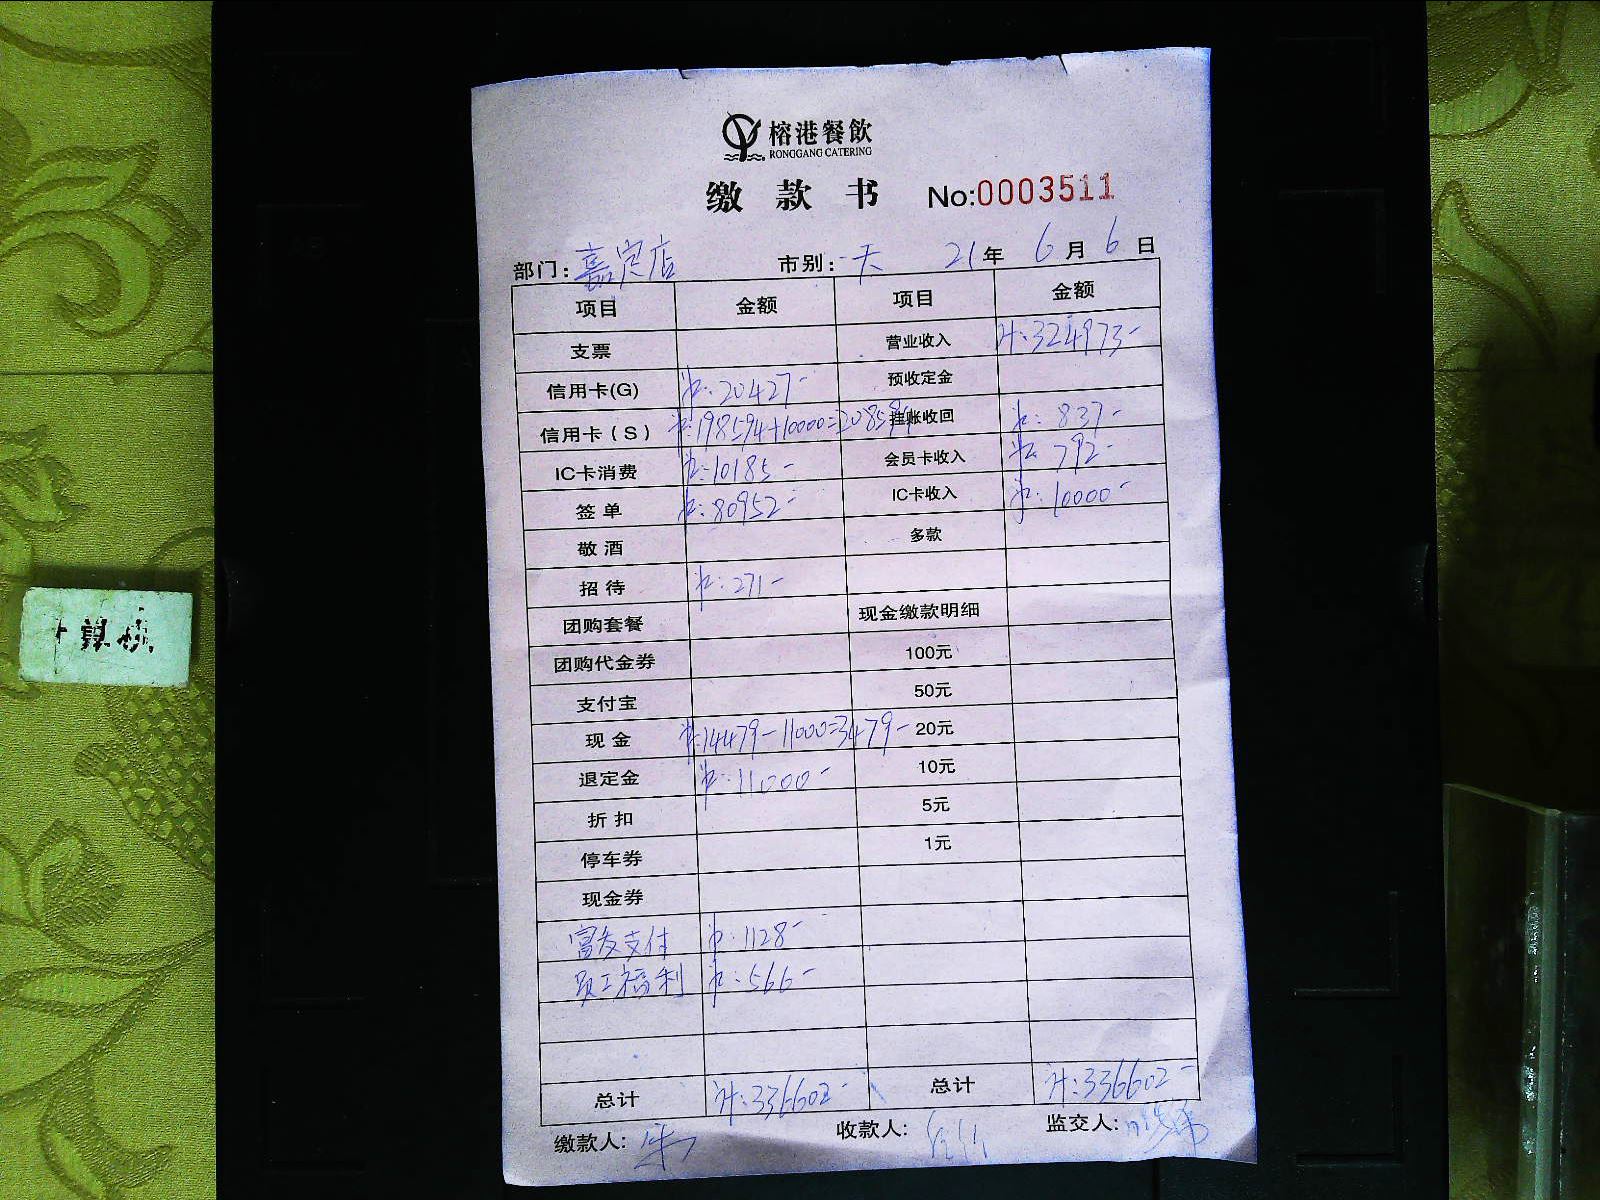 榕港餐飲
RONGGANG CATERING
缴款书 No:0003511
部门:嘉定店 市别:一天 21年6月6日
项目 金额 项目 金额
支票 营业收入 计:324973-
信用卡(G) 20427- 预收定金
信用卡(S) 198594+10000=208594 挂账收回 837-
IC卡消费 10185- 会员卡收入 792-
签单 80952- IC卡收入 10000-
敬酒 多款
招待 271-
团购套餐 现金缴款明细
团购代金券 100元
支付宝 50元
现金 14479-11000=3479- 20元
退定金 11000- 10元
折扣 5元
停车券 1元
现金券
富友支付 1128-
员工福利 566-
总计 计:336602- 总计 计:336602-
缴款人: 收款人: 监交人: